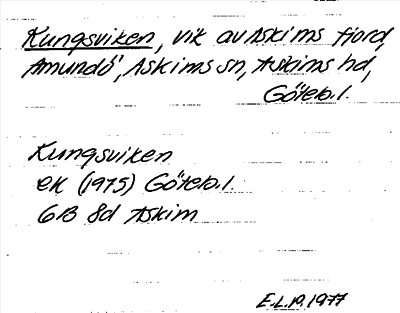 Kungsviken, vik av Askims fjord,
Amundö, Askims sn, Askims hd,
Göteb. l.
Kungsviken
ek (1975) Göteb. l.
6B 8d Askim
E.L.P. 1977